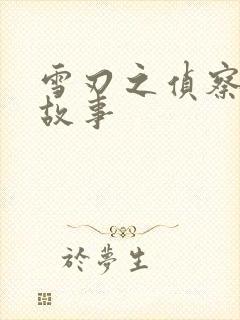 雪刃之偵察
故事
於夢生